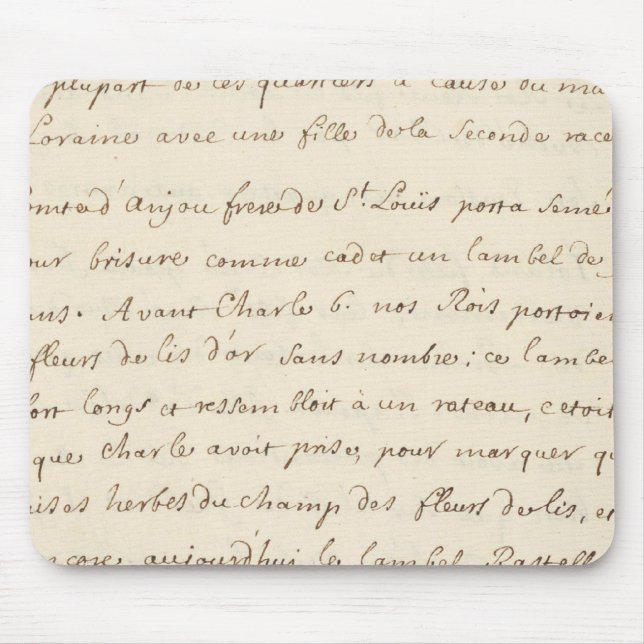 plupart de ces quartiers a cause du ma
Loraine avec une fille de la seconde race
omte d'Anjou frere de St. Loüis porta semé
our brisure comme cadet un lambel de
ans. Avant Charle 6. nos Rois portoien
fleurs de lis d'or sans nombre; ce lambe
fort longs et ressembloit à un rateau, c'etoit
que Charle avoit prise, pour marquer qu
uises herbes du champ des fleurs de lis, et
ncore aujourd'hui le lambel Rastell